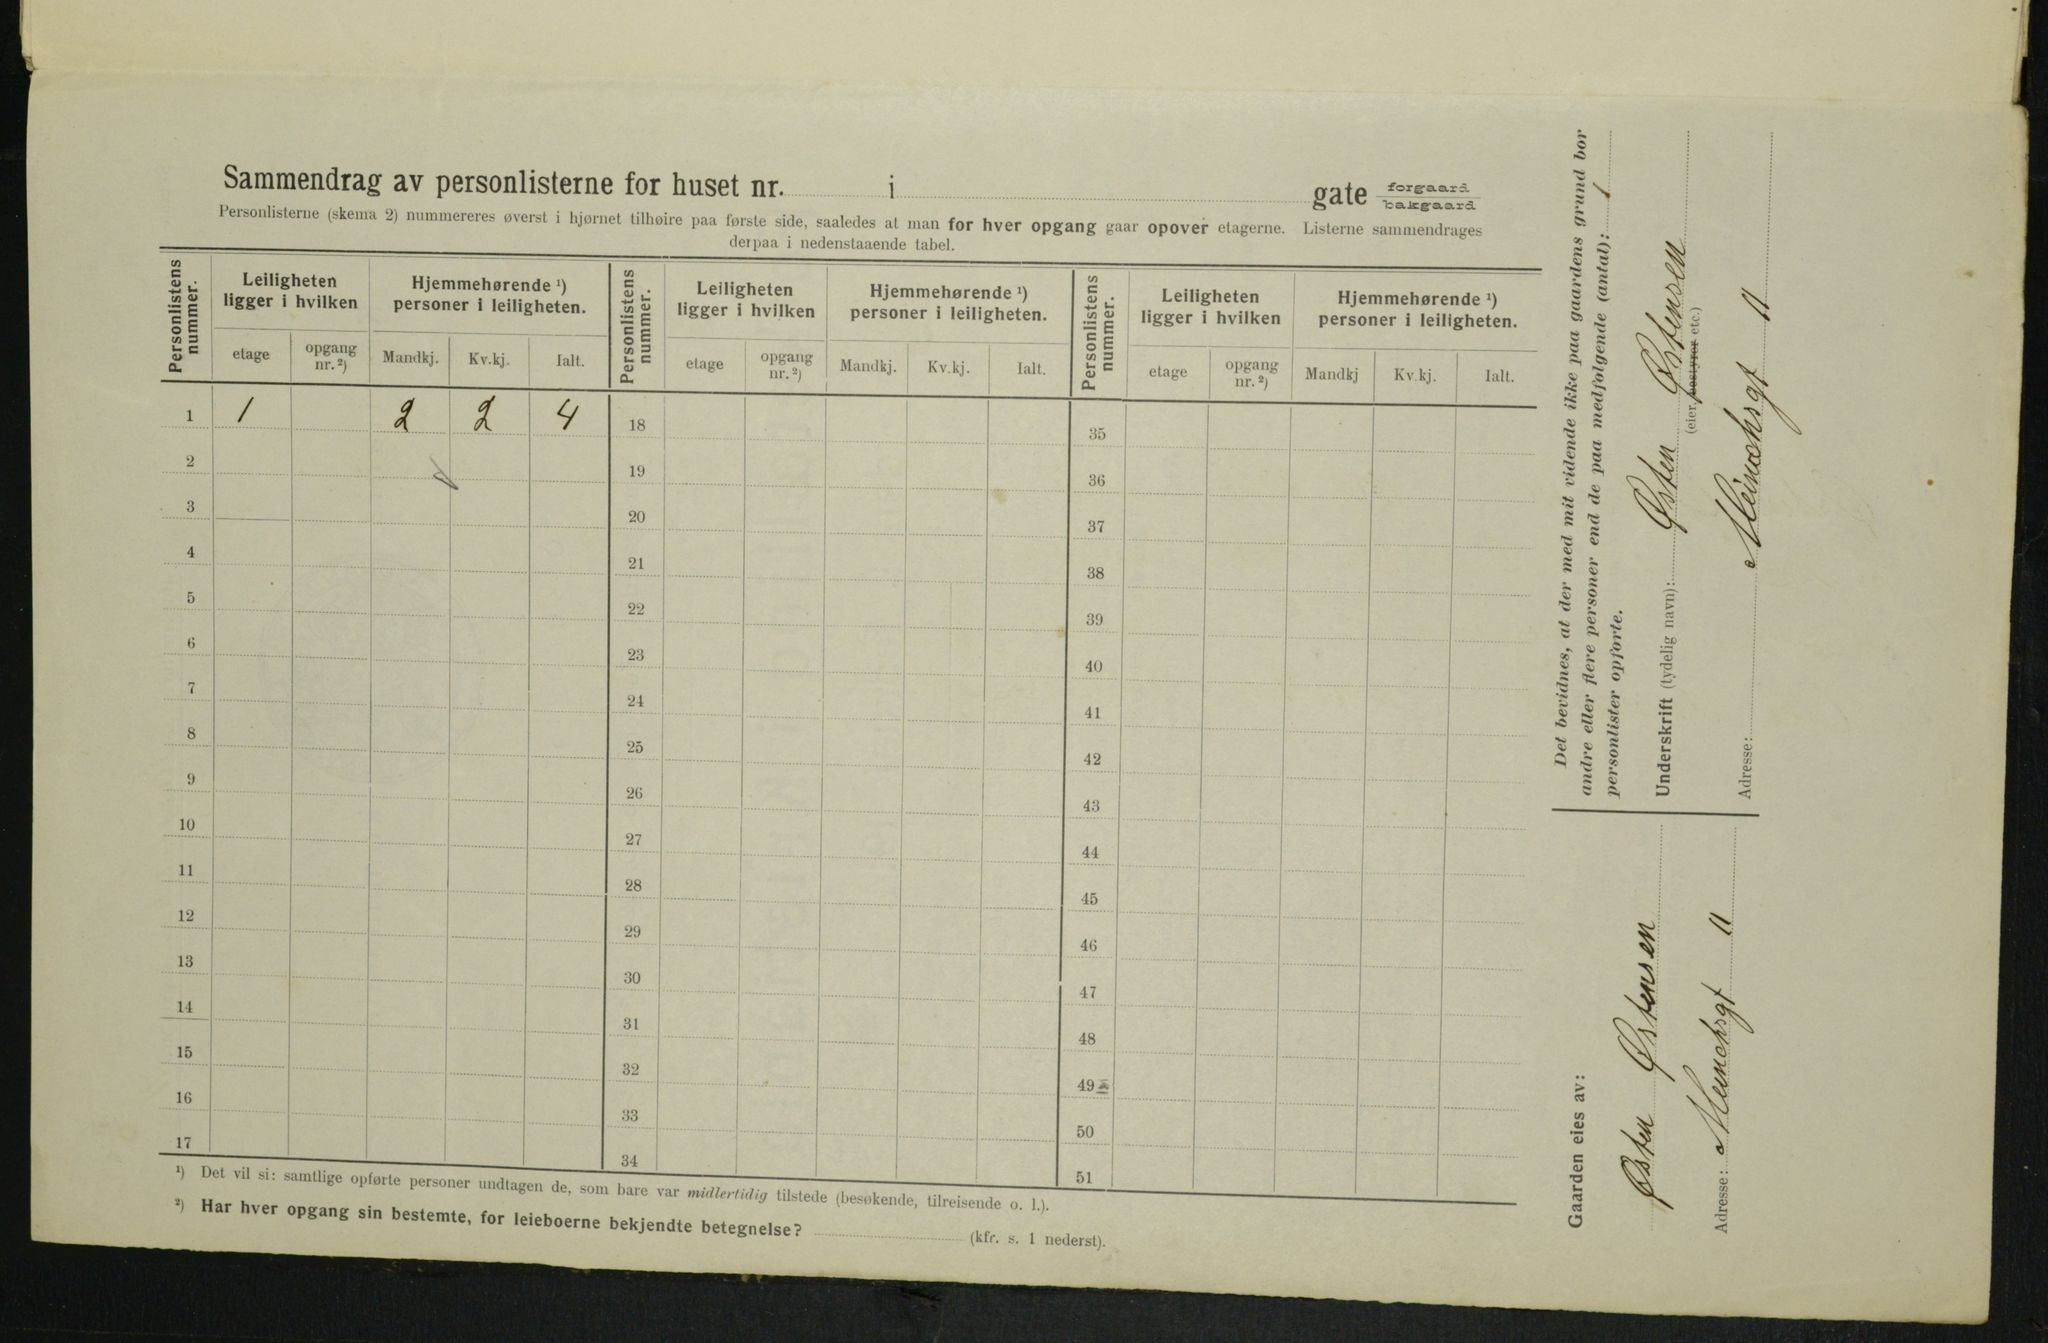 Sammendrag av personlisterne for huset nr. i gate forgaard bakgaard
Personlisterne (skema 2) nummereres øverst i hjørnet tilhøire paa første side, saaledes at man for hver opgang gaar opover etagerne. Listerne sammendrages
derpaa i nedenstaaende tabel.
Personlistens nummer. Leiligheten ligger i hvilken Hjemmehørende ¹) personer i leiligheten. Personlistens nummer. Leiligheten ligger i hvilken Hjemmehørende ¹) personer i leiligheten. Personlistens nummer. Leiligheten ligger i hvilken Hjemmehørende ¹) personer i leiligheten.
etage opgang nr. ²) Mandkj. Kv.kj. Ialt. etage opgang nr. ²) Mandkj. Kv.kj. Ialt. etage opgang nr. ²) Mandkj Kv.kj. Ialt.
1 1 2 2 4 18 35
2 19 36
3 20 37
4 21 38
5 22 39
6 23 40
7 24 41
8 25 42
9 26 43
10 27 44
11 28 45
12 29 46
13 30 47
14 31 48
15 32 49
16 33 50
17 34 51
¹) Det vil si: samtlige opførte personer undtagen de, som bare var midlertidig tilstede (besøkende, tilreisende o. l.).
²) Har hver opgang sin bestemte, for leieboerne bekjendte betegnelse? (kfr. s. 1 nederst).
Det bevidnes, at der med mit vidende ikke paa gaardens grund bor
andre eller flere personer end de paa medfølgende (antal): 1
personlister opførte.
Underskrift (tydelig navn): Østen Østensen
(eier, bestyrer etc.)
Adresse: 11
Gaarden eies av:
Østen Østensen
Adresse: 11